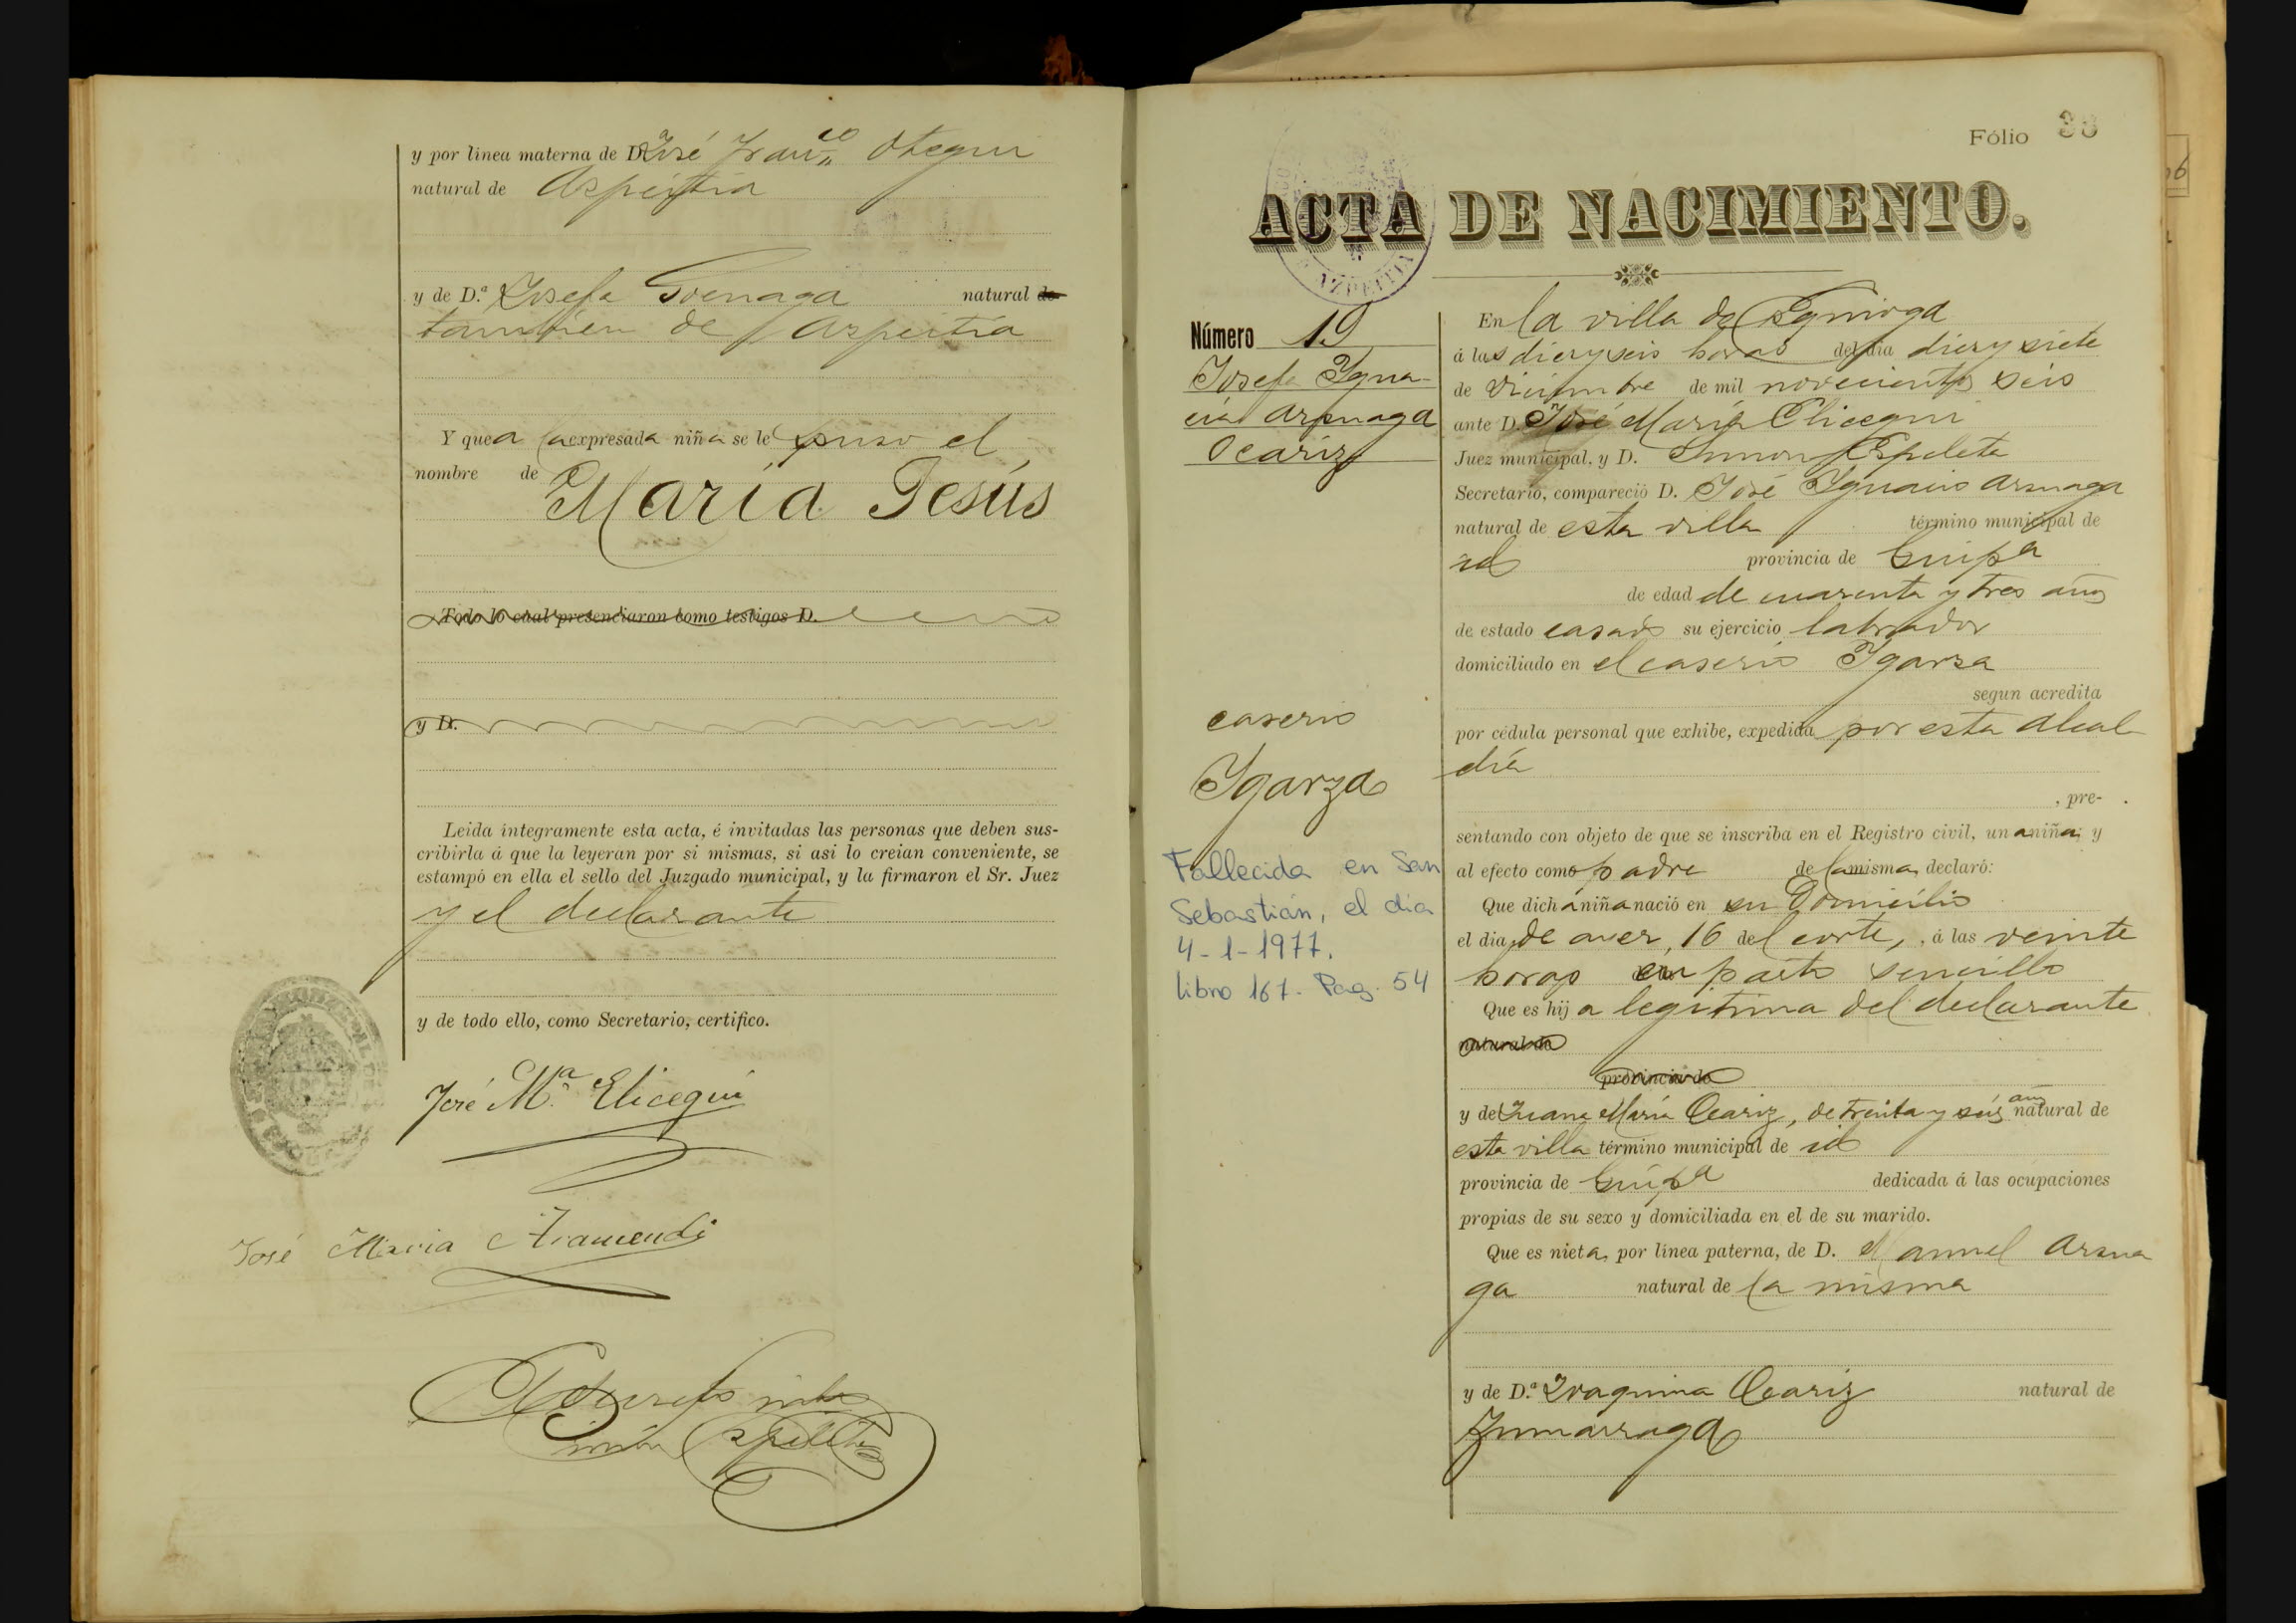 y por línea materna de D. José Fran.co Otegui
natural de Azpeitia
y de D.ª Josefa Goenaga natural de
tambien de Azpeitia
Y que a la expresada niña se le puso el
nombre de María Jesús
Todo lo cual presenciaron como testigos D.
y D.
Leida íntegramente esta acta, é invitadas las personas que deben sus-
cribirla á que la leyeran por si mismas, si asi lo creian conveniente, se
estampó en ella el sello del Juzgado municipal, y la firmaron el Sr. Juez
y el declarante
y de todo ello, como Secretario, certifico.
José M.ª Elicegui
José Maria Aramendi
Espeleta
Fólio 38
ACTA DE NACIMIENTO.
AZPEITIA
Número 19
Josefa Ygna-
cia Arsuaga
Ocariz
caserio
Ygarza
Fallecida en San
Sebastián, el día
4-1-1977.
libro 167. Pag. 54
En la villa de
á las diez y seis horas del dia diez y siete
de Diciembre de mil novecientos seis
ante D. José María Elicegui
Juez municipal, y D. Simon Espeleta
Secretario, compareció D. José Ygnacio Arsuaga
natural de esta villa término municipal de
id provincia de Guip.a
de edad de cuarenta y tres años
de estado casado su ejercicio labrador
domiciliado en el caserio Ygarza
segun acredita
por cédula personal que exhibe, expedida por esta Alcal
día
, pre-
sentando con objeto de que se inscriba en el Registro civil, una niña; y
al efecto como padre de la misma, declaró:
Que dicha niña nació en su Domicilio
el dia de ayer, 16 del corte, , á las veinte
horas en parto sencillo
Que es hija legitima del declarante
natural de
provincia de
y de Juana María Ocariz, de treinta y seis años natural de
esta villa término municipal de id
provincia de Guip.a dedicada á las ocupaciones
propias de su sexo y domiciliada en el de su marido.
Que es nieta, por línea paterna, de D. Manuel Arsua
ga natural de la misma
y de D.ª Joaquina Ocariz natural de
Zumarraga